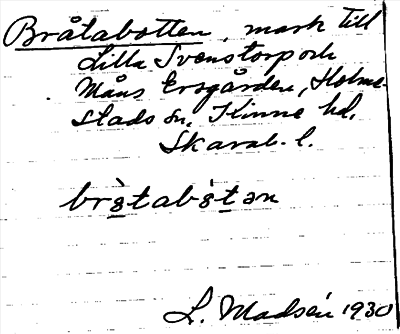 Bråtabotten, mark till
Lilla Svenstorp och
Måns Ersgården, Holme-
stads sn, Kinne hd,
Skarab. l.
bròtabótən
L. Madsén 1930